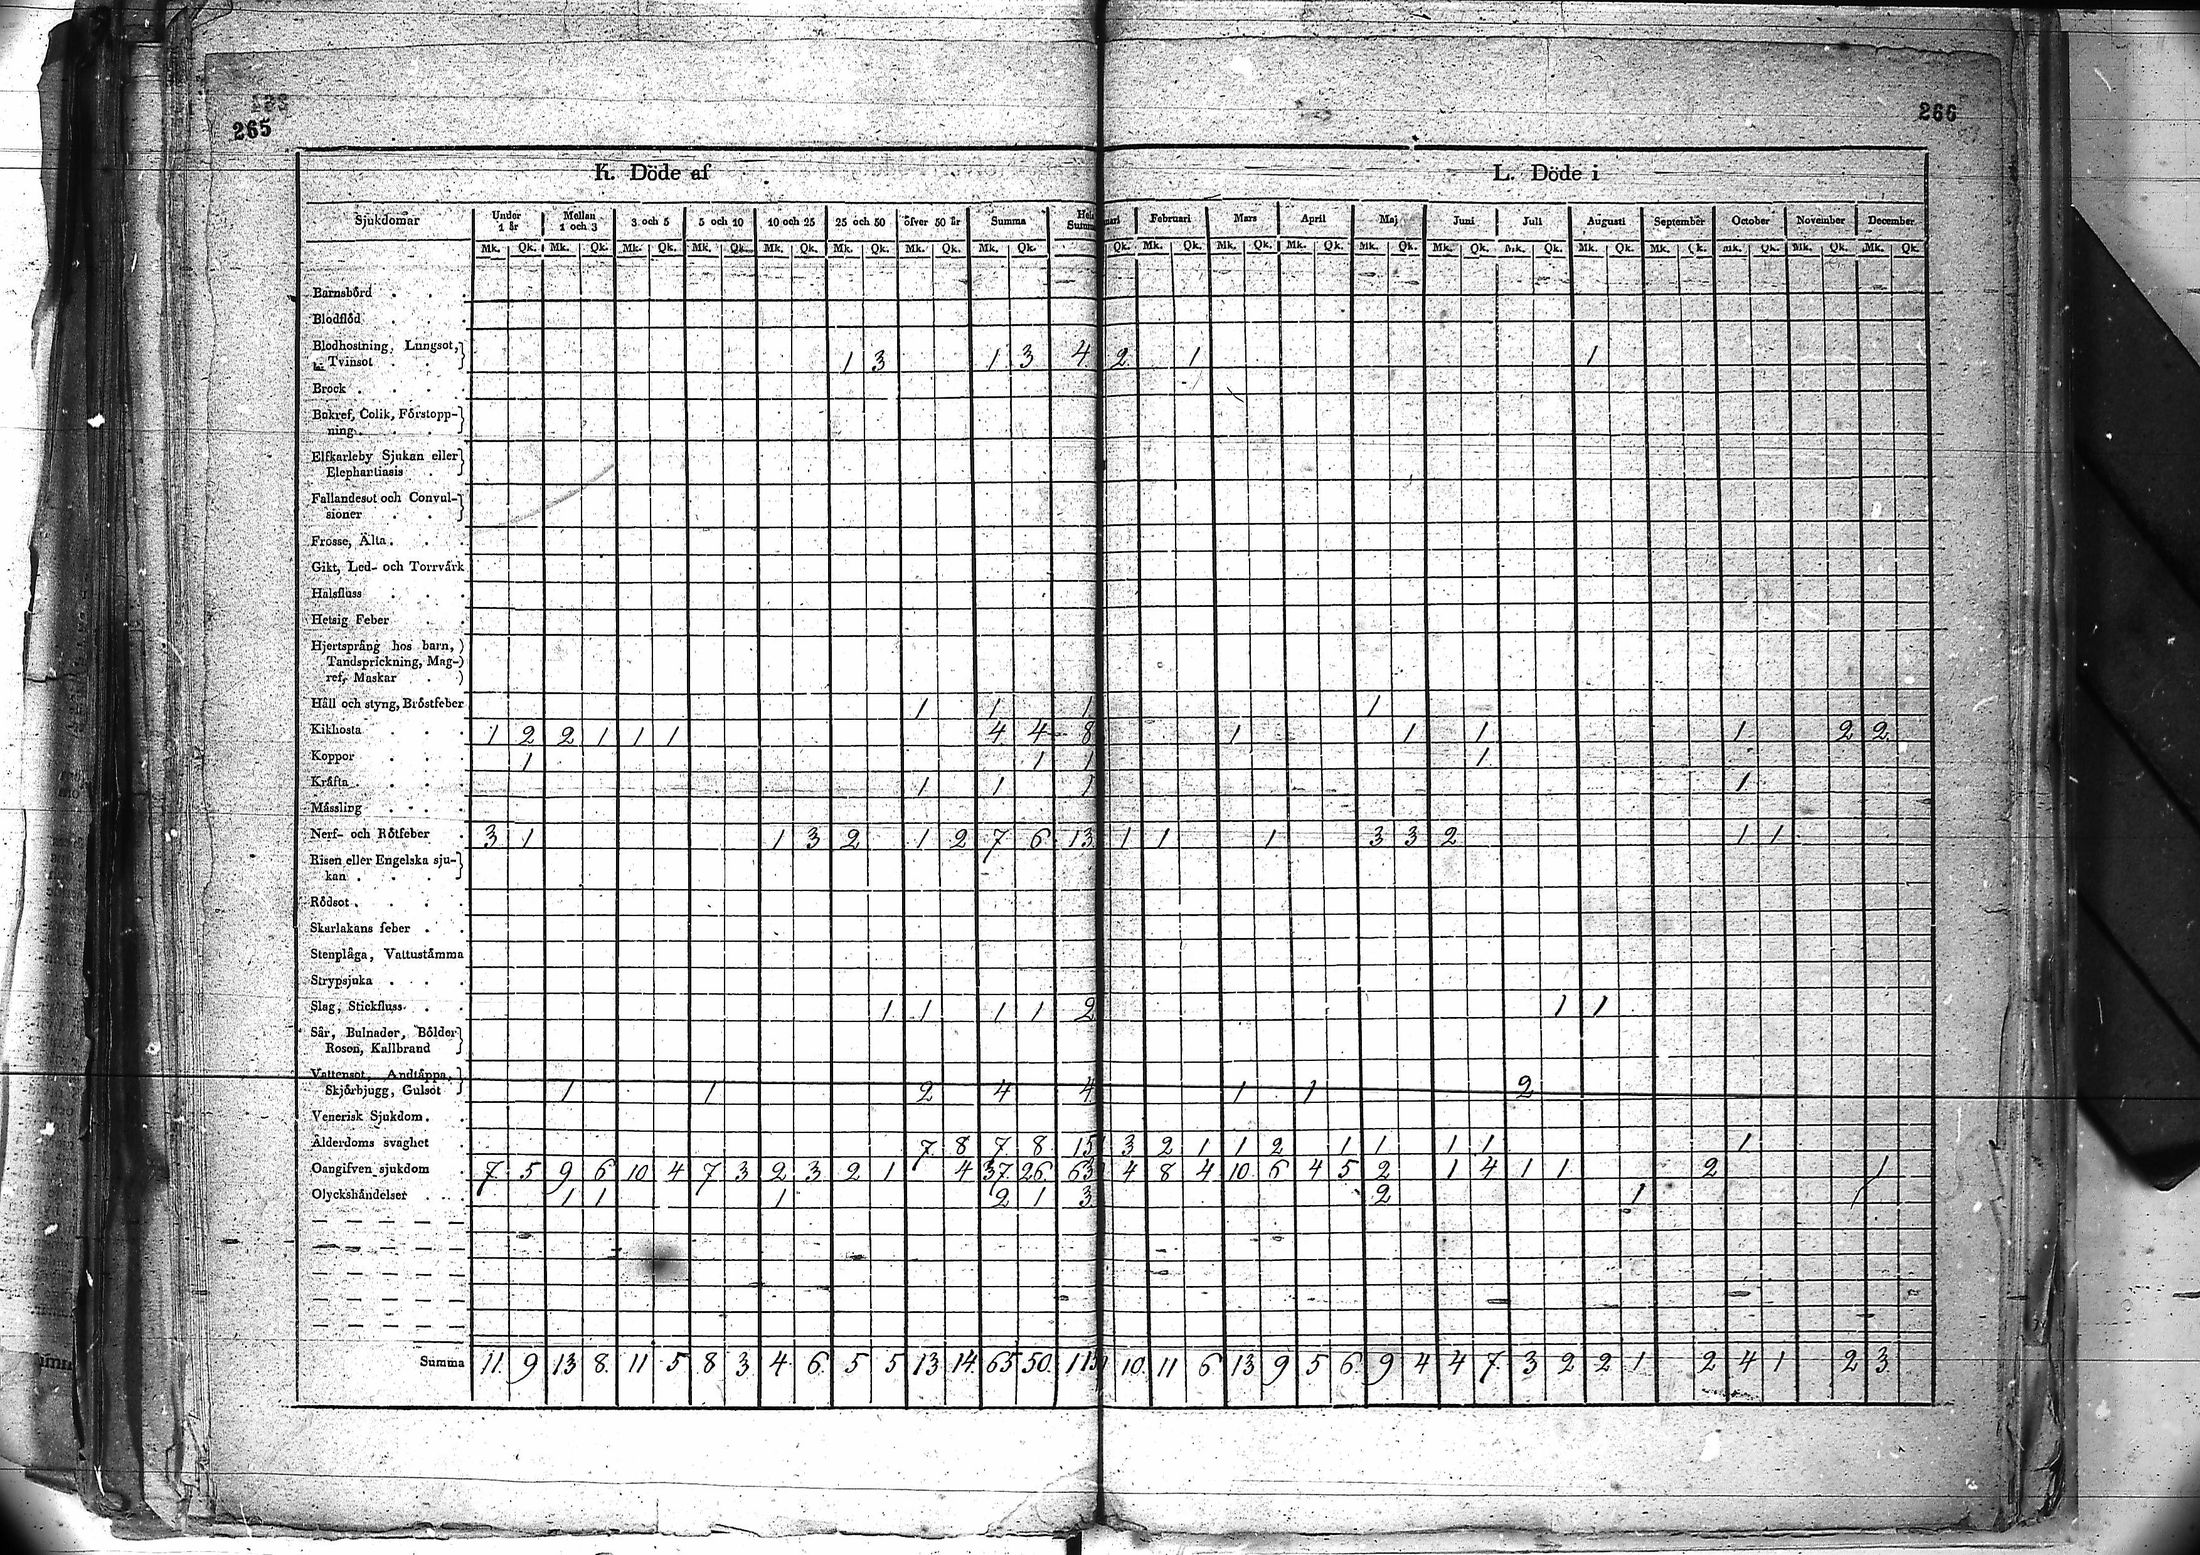 265
266
K. Döde af
L. Döde i
Sjukdomar Under 1 år Mellan 1 och 3 3 och 5 5 och 10 10 och 25 25 och 50 öfver 50 år Summa Hela Summ Februari Mars April Maj Juni Juli Augusti September October November December
Mk. Qk. Mk. Qk. Mk. Qk. Mk. Qk. Mk. Qk. Mk. Qk. Mk. Qk. Mk. Qk. Qk. Mk. Qk. Mk. Qk. Mk. Qk. Mk. Qk. Mk. Qk. Mk. Qk. Mk. Qk. Mk. Qk. Mk. Qk. Mk. Qk. Mk. Qk.
Barnsbörd
Blodflöd
Blodhostning, Lungsot,
Tvinsot 1 3 1 3 4 2 1 1
Brock
Bukref, Colik, Förstopp-
ning
Elfkarleby Sjukan eller
Elephantiasis
Fallandesot och Convul-
sioner
Frosse, Älta
Gikt, Led- och Torrvärk
Halsfluss
Hetsig Feber
Hjertsprång hos barn,
Tandsprickning, Mag-
ref, Maskar
Håll och styng, Bröstfeber 1 1 1 1
Kikhosta 1 2 2 1 1 1 4 4 8 1 1 1 1 2 2
Koppor 1 1 1 1
Kräfta 1 1 1 1
Mässling
Nerf- och Rötfeber 3 1 1 3 2 1 2 7 6 13 1 1 1 3 3 2 1 1
Risen eller Engelska sju-
kan
Rödsot
Skarlakans feber
Stenplåga, Vattustämma
Strypsjuka
Slag, Stickfluss 1 1 1 1 2 1 1
Sår, Bulnader, Bölder
Rosen, Kallbrand
Vattensot, Andtäppa,
Skjörbjugg, Gulsot 1 1 2 4 4 1 1 2
Venerisk Sjukdom
Ålderdoms svaghet 7 8 7 8 15 3 2 1 1 2 1 1 1 1 1
Oangifven sjukdom 7 5 9 6 10 4 7 3 2 3 2 1 4 37 26 63 4 8 4 10 6 4 5 2 1 4 1 1 2 1
Olyckshändelser 1 1 1 2 1 3 2 1
Summa 11 9 13 8 11 5 8 3 4 6 5 5 13 14 65 50 115 10 11 6 13 9 5 6 9 4 4 7 3 2 2 1 2 4 1 2 3